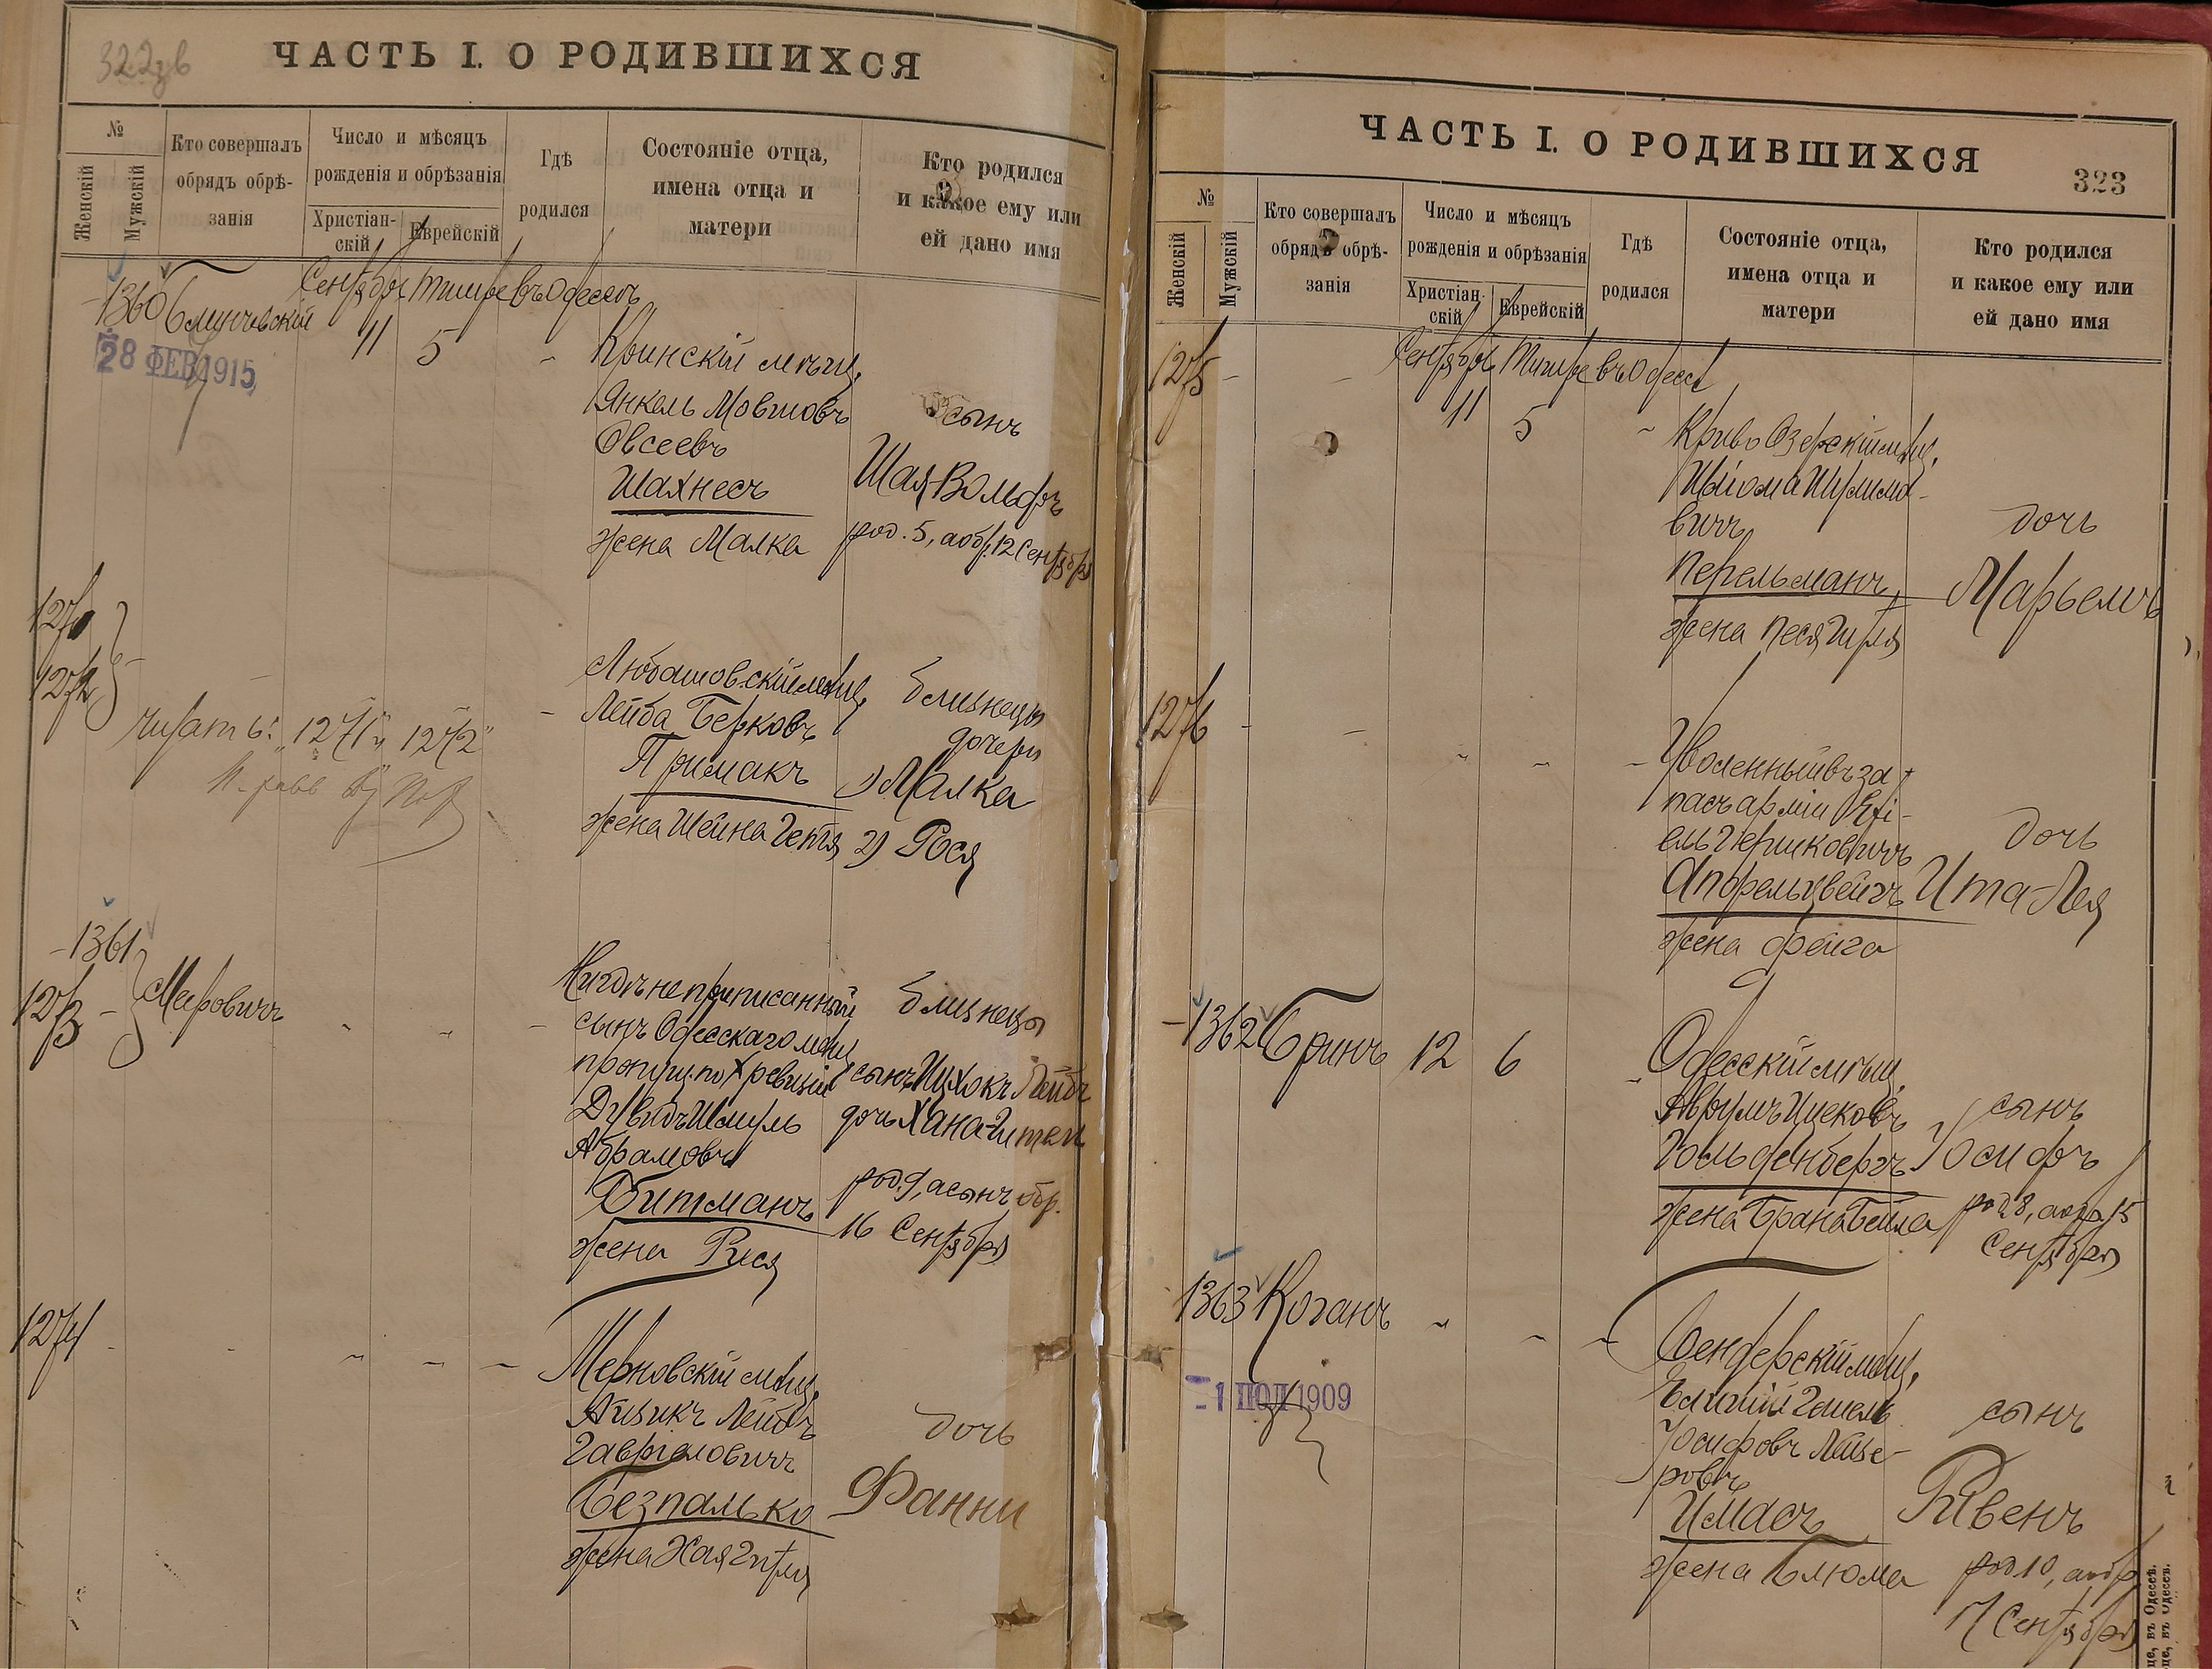 322 об
ЧАСТЬ I. О РОДИВШИХСЯ
№
Женскій
Мужскій
Кто совершалъ
обрядъ обрѣ-
занія
Число и мѣсяцъ
рожденія и обрѣзанія
Христіан-
скій
Еврейскій
Гдѣ
родился
Состояніе отца,
имена отца и
матери
Кто родился
и какое ему или
ей дано имя
1360 Блинчевскій
Сентябрь Тишре въ Одессѣ
11 5
28 ФЕВ 1915
Кринскій мѣщ.
Янкель Мовшовъ
Овсеевъ
Шахнесъ
жена Малка
сынъ
Шая-Вольфъ
род. 5, а обр. 12 Сентября
1271
1272
читать: "1271" и "1272"
Любашовскій мѣщ.
Лейба Берковъ
Примакъ
жена Шейна Гетя
близнецы
дочери
1) Малка
2) Рося
1361
1273
Меровичъ
Нигдѣ не приписанный
сынъ Одесскаго мѣщ.
пропущ. по X ревизіи
Дувидъ Шмуль
Абрамовъ
Битманъ
жена Рися
близнецы
сынъ Ицхокъ Лейбъ
дочь Хана-Гитель
род. 9, а сынъ обр.
16 Сентября
1274
Терновскій мѣщ.
Айзикъ Лейбъ
Гавріеловичъ
Безпалько
жена Хая Гитля
дочь
Фанни
ЧАСТЬ I. О РОДИВШИХСЯ
323
№
Женскій
Мужскій
Кто совершалъ
обрядъ обрѣ-
занія
Число и мѣсяцъ
рожденія и обрѣзанія
Христіан-
скій
Еврейскій
Гдѣ
родился
Состояніе отца,
имена отца и
матери
Кто родился
и какое ему или
ей дано имя
1275
Сентябрь Тишре въ Одессѣ
11 5
Криво Озерскій мѣщ.
Шлiома
вичъ
Перельманъ
жена Песя Гитля
дочь
Марьемъ
1276
Уволенный въ за-
пасъ арміи Ехі-
ель Гершковичъ
Апфельцвейгъ
жена Фейга
дочь
Ита-Лея
1362 Бринъ 12 6
Одесскій мѣщ.
Аврумъ Ицековъ
Гольденбергъ
жена Брана Бейла
сынъ
Іосифъ
род 8, а обр. 15
Сентября
1363 Коганъ
-1 ИЮЛ 1909
Бендерскій мѣщ.
Іосифовъ Лейзе-
ровъ
Имасъ
жена Блюма
сынъ
Рувенъ
род 10, а обр
17 Сентября